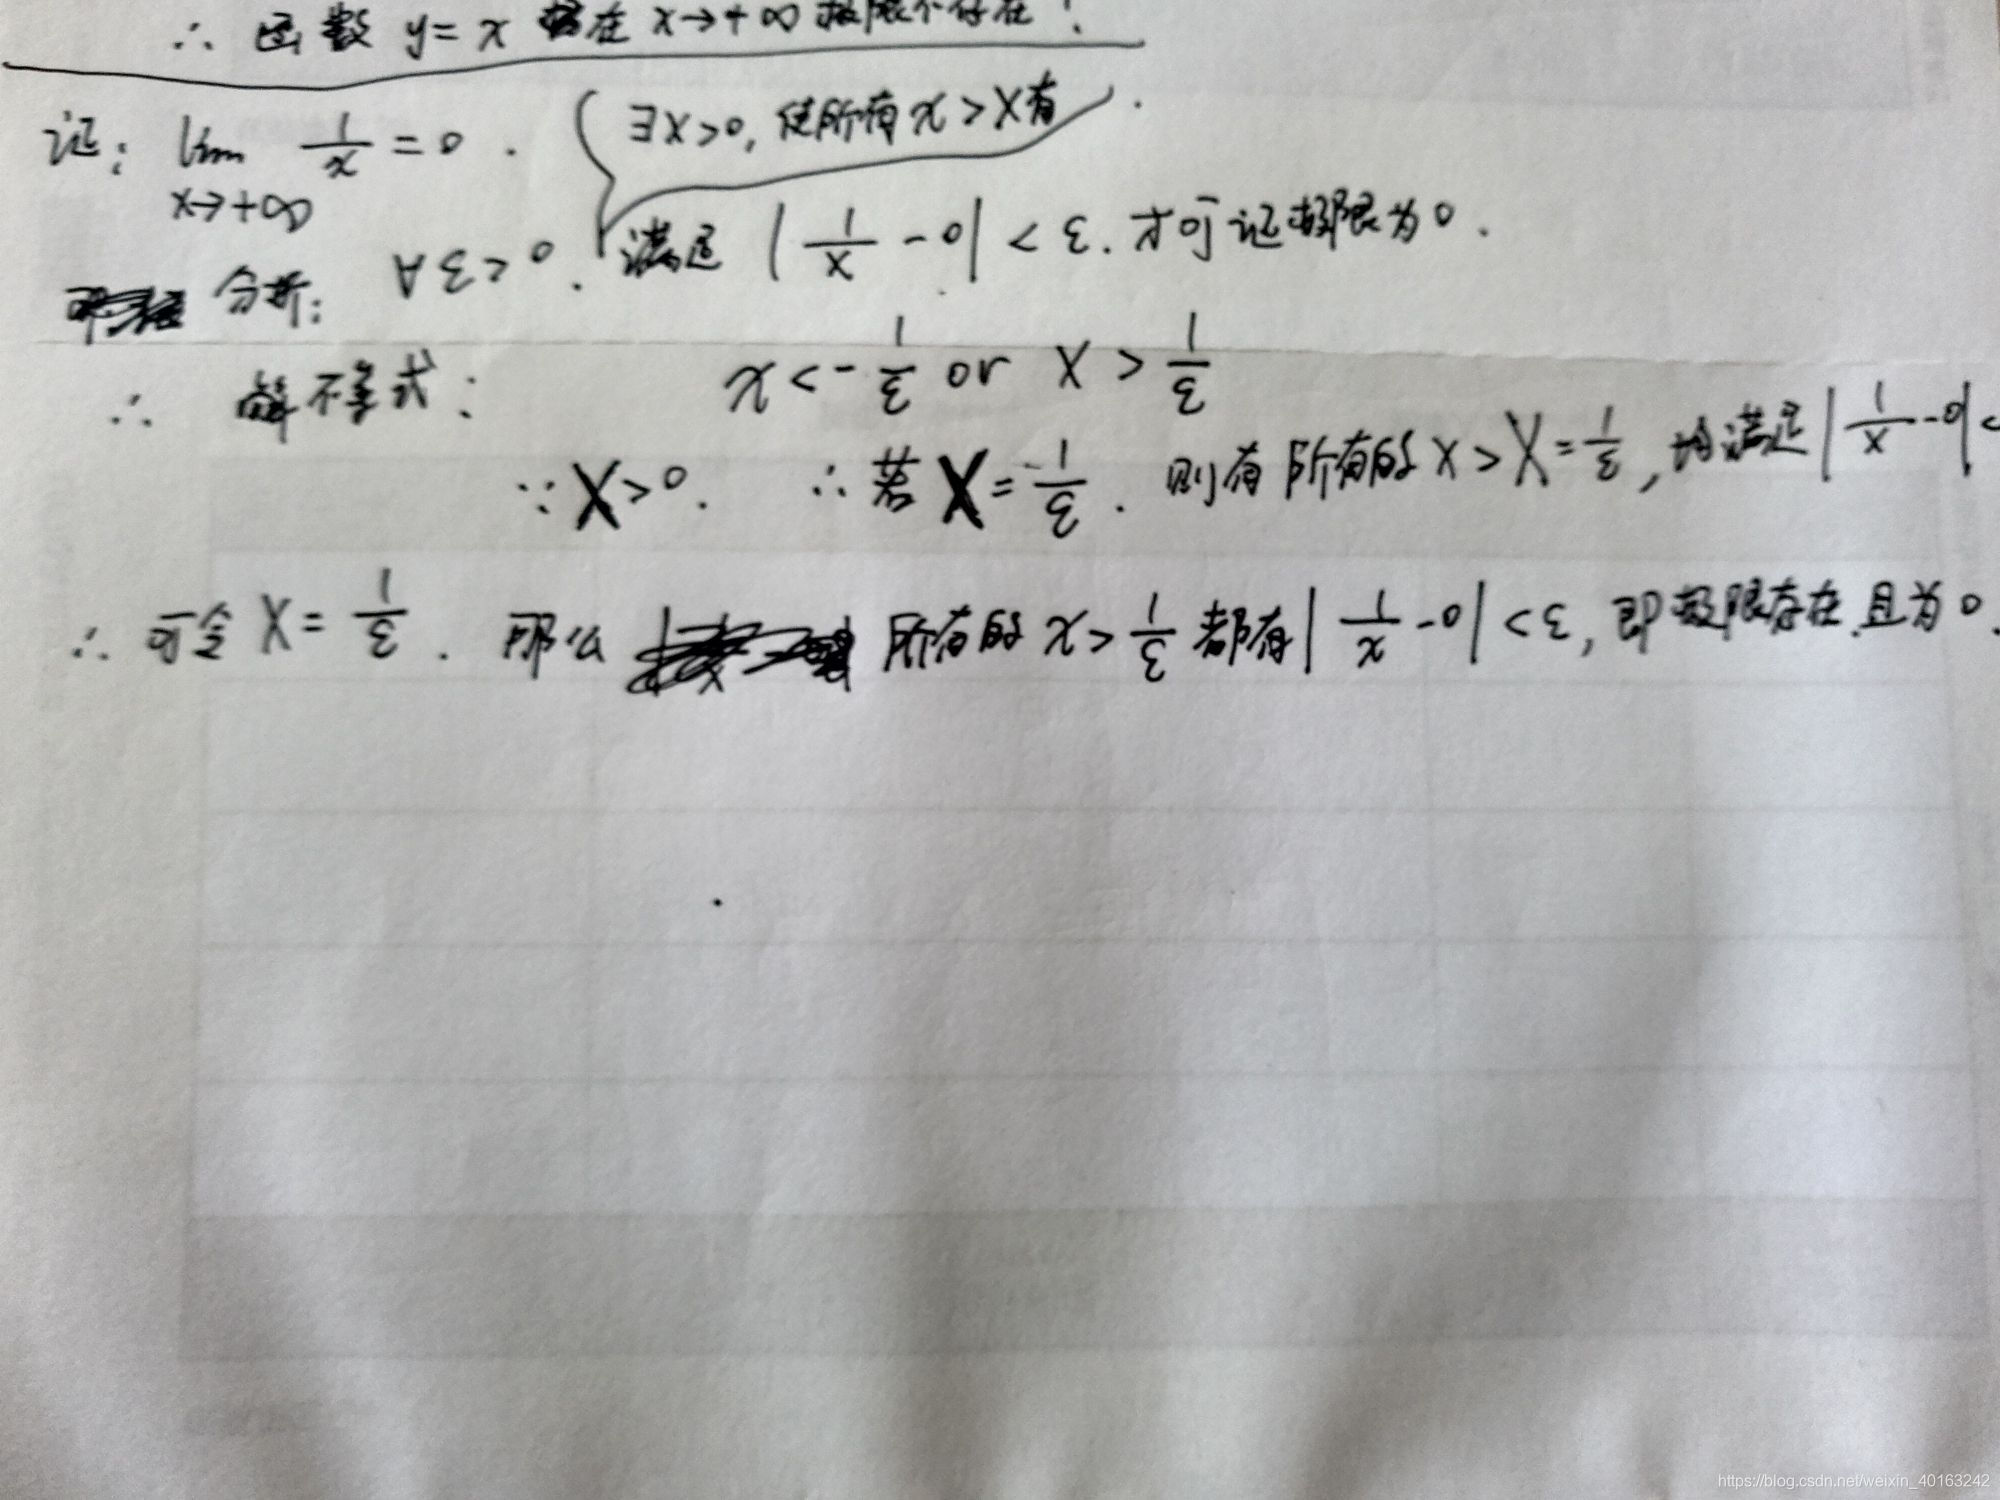 ∴ 函数 y = x 在 x→+∞ 极限不存在!
证: lim 1/x = 0.
x→+∞
∃X>0, 使所有 x > X 有
分析: ∀ε>0. 满足 | 1/x - 0 | < ε. 才可证极限为0.
∴ 解不等式: x < - 1/ε or x > 1/ε
∵ X>0. ∴ 若 X = 1/ε. 则有 所有的 x > X = 1/ε, 均满足 | 1/x - 0 | <
∴ 可令 X = 1/ε. 那么 所有的 x > 1/ε 都有 | 1/x - 0 | < ε, 即极限存在 且为0.
https://blog.csdn.net/weixin_40163242